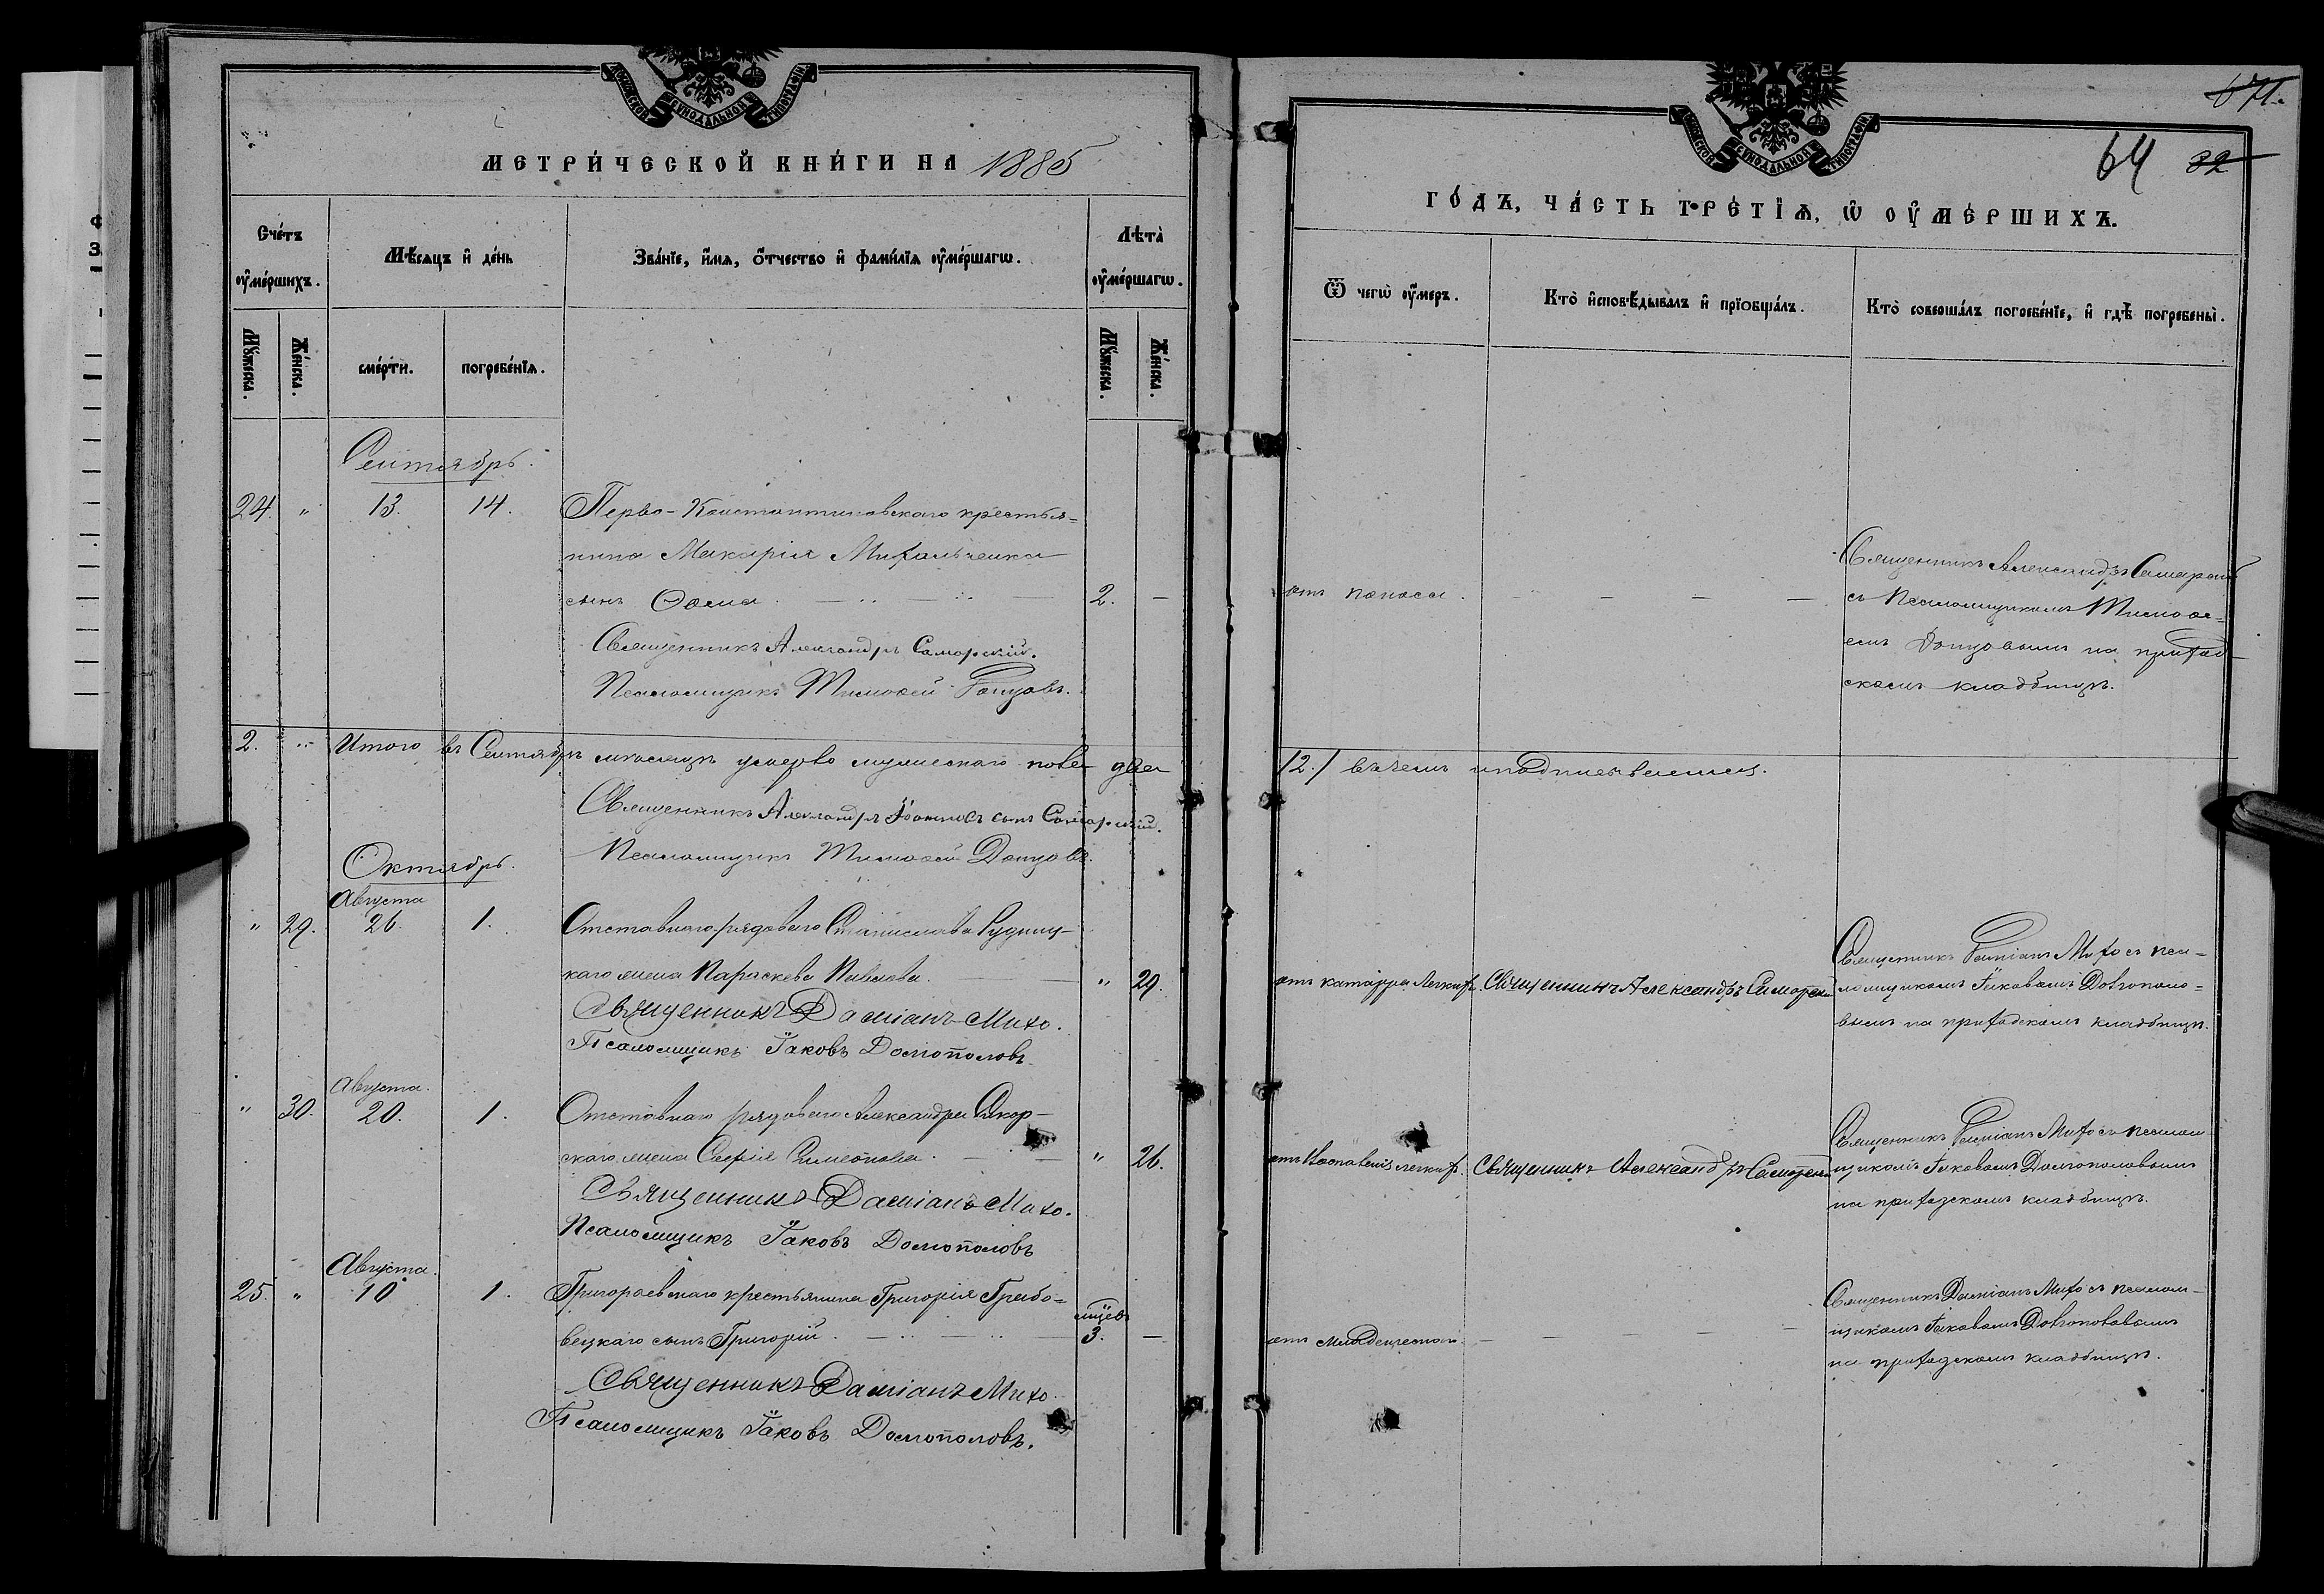 МОСКОВСКОЙ СѴНОДАЛЬНОЙ ТИПОГРАФІИ
МЕТРИ́ЧЕСКОЙ КНИ́ГИ НА 1885
Сче́тъ ᲂу҆ме́ршихъ.
Мѣ́сяцъ и҆ де́нь
Зва́нїе, и҆́мѧ, ѻ҆́тчество и҆ фами́лїѧ ᲂу҆ме́ршагѡ.
Лѣта̀ ᲂу҆ме́ршагѡ.
Мꙋ́жеска.
Же́нска.
сме́рти.
погребе́нїѧ.
Мꙋ́жеска.
Же́нска.
Сентябрь.
24. " 13. 14. Перво-Константиновскаго крестья=
нина Макарія Михальченка
сынъ Ѳома. 2. —
Священникъ Александръ Самарскій.
Псаломщикъ Тимоѳей Донцовъ.
2. " Итого въ Сентябрѣ мѣсяцѣ умерло мужескаго пола два
Священникъ Александръ Іоанновъ сынъ Самарскій.
Псаломщикъ Тимоѳей Донцовъ.
Октябрь.
Августа
" 29. 26. 1. Отставнаго рядоваго Станислава Рудниц-
каго жена Параскева Павлова. " 29.
Священникъ Даміанъ Михо.
Псаломщикъ Іаковъ Долгополовъ
Августа.
" 30. 20. 1. Отставнаго рядоваго Александра Сикор-
скаго жена Софія Симеонова. " 26.
Священникъ Даміанъ Михо.
Псаломщикъ Іаковъ Долгополовъ
Августа.
25. " 10 1. Григорьевскаго крестьянина Григорія Грабо=
вецкаго сынъ Григорій. 3. —
Священникъ Даміанъ Михо
Псаломщикъ Іаковъ Долгополовъ.
МОСКОВСКОЙ СѴНОДАЛЬНОЙ ТИПОГРАФІИ
64 32
ГО́ДЪ, ЧА́СТЬ ТРЕ́ТЇѦ, Ѡ҆ ОУ҆МЕ́РШИХЪ.
Ѿ чегѡ̀ ᲂу҆́меръ.
Кто̀ и҆сповѣ́дывалъ и҆ прїобща́лъ.
Кто̀ соверша́лъ погребе́нїе, и҆ гдѣ̀ погребены̀.
отъ поноса.
Священникъ Александръ Самарскій
съ Псаломщикомъ Тимоѳе=
емъ Донцовымъ на приход-
скомъ кладбищѣ.
/2./ въ чемъ и подписываемся.
отъ катарра легкихъ. Священникъ Александръ Самарскій
Священникъ Даміанъ Михо съ пса-
ломщикомъ Іаковомъ Долгополо=
вымъ на приходскомъ кладбищѣ.
отъ воспаленія легкихъ. Священникъ Александръ Самарскій
Священникъ Даміанъ Михо съ псалом
щикомъ Іаковомъ Долгополовымъ
на приходскомъ кладбищѣ.
отъ младенческой.
Священникъ Даміанъ Михо съ псалом-
щикомъ Іаковомъ Долгополовымъ
на приходскомъ кладбищѣ.